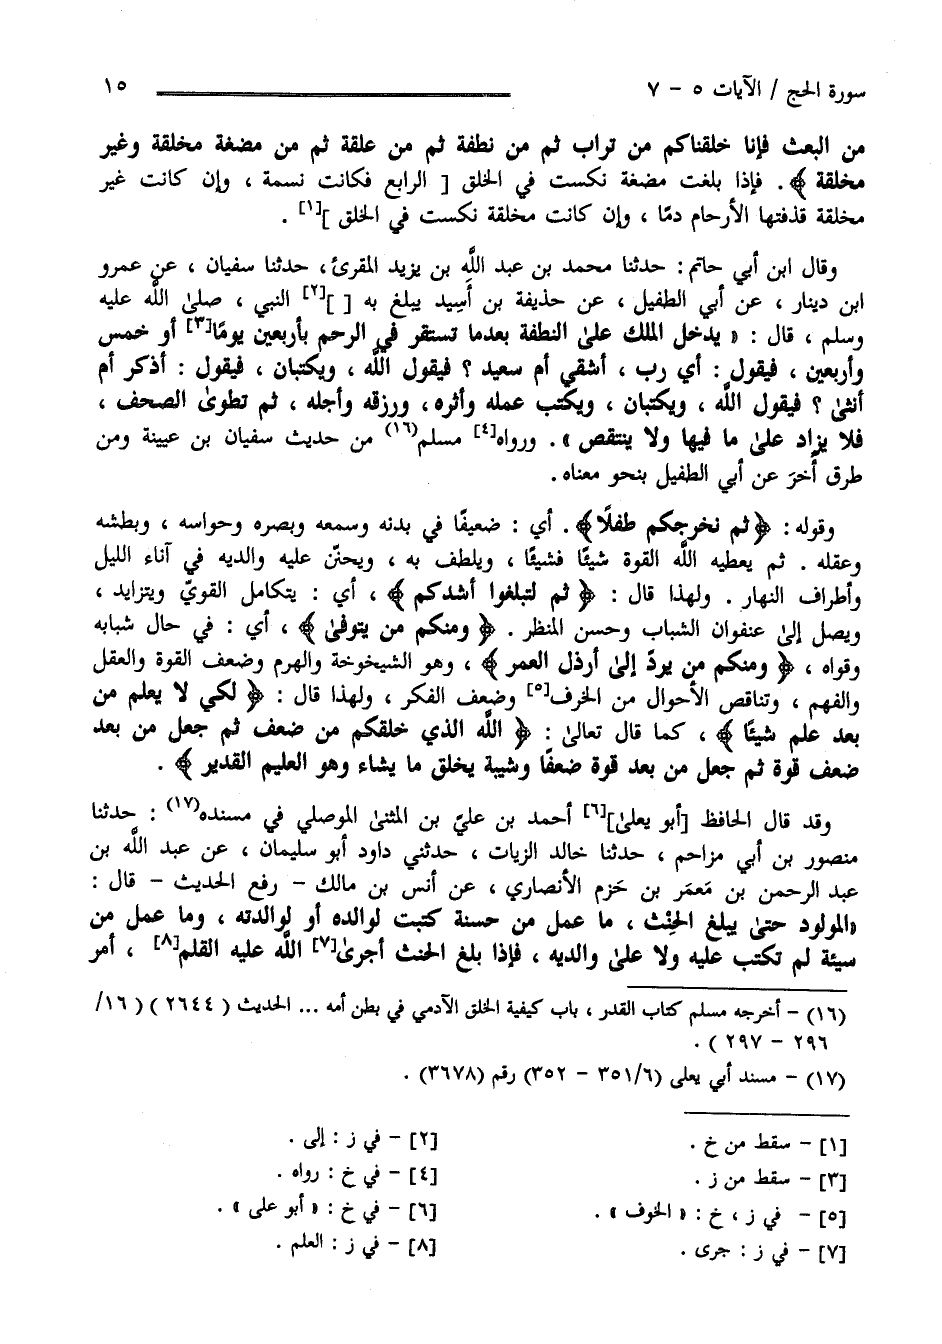 سورة الحج / الآيات ٥ - ٧ ١٥
من البعث فإنا خلقناكم من تراب ثم من نطفة ثم من علقة ثم من مضغة مخلقة وغير
مخلقة ﴾ . فإذا بلغت مضغة نكست في الخلق [ الرابع فكانت نسمة ، وإن كانت غير
مخلقة قذفتها الأرحام دمًا ، وإن كانت مخلقة نكست في الخلق ][١] .
وقال ابن أبي حاتم : حدثنا محمد بن عبد اللَّه بن يزيد المقرئ ، حدثنا سفيان ، عن عمرو
ابن دينار ، عن أبي الطفيل ، عن حذيفة بن أَسِيد يبلغ به [ ][٢] النبي ، صلىٰ اللَّه عليه
وسلم ، قال : « يدخل الملك علىٰ النطفة بعدما تستقر في الرحم بأربعين يومًا[٣] أو خمس
وأربعين ، فيقول : أي رب ، أشقي أم سعيد ؟ فيقول اللَّه ، ويكتبان ، فيقول : أذكر أم
أنثىٰ ؟ فيقول اللَّه ، ويكتبان ، ويكتب عمله وأثره ، ورزقه وأجله ، ثم تطوىٰ الصحف ،
فلا يزاد علىٰ ما فيها ولا ينتقص » . ورواه[٤] مسلم(١٦) من حديث سفيان بن عيينة ومن
طرق أُخرَ عن أبي الطفيل بنحو معناه .
وقوله : ﴿ ثم نخرجكم طفلًا ﴾ . أي : ضعيفًا في بدنه وسمعه وبصره وحواسه ، وبطشه
وعقله . ثم يعطيه اللَّه القوة شيئًا فشيئًا ، ويلطف به ، ويحنّن عليه والديه في آناء الليل
وأطراف النهار . ولهذا قال : ﴿ ثم لتبلغوا أشدكم ﴾ ، أي : يتكامل القويّ ويتزايد ،
ويصل إلىٰ عنفوان الشباب وحسن المنظر . ﴿ ومنكم من يتوفىٰ ﴾ ، أي : في حال شبابه
وقواه ، ﴿ ومنكم من يردّ إلىٰ أرذل العمر ﴾ ، وهو الشيخوخة والهرم وضعف القوة والعقل
والفهم ، وتناقص الأحوال من الخرف[٥] وضعف الفكر ، ولهذا قال : ﴿ لكي لا يعلم من
بعد علم شيئًا ﴾ ، كما قال تعالىٰ : ﴿ اللَّه الذي خلقكم من ضعف ثم جعل من بعد
ضعف قوة ثم جعل من بعد قوة ضعفًا وشيبة يخلق ما يشاء وهو العليم القدير ﴾ .
وقد قال الحافظ [أبو يعلىٰ][٦] أحمد بن عليّ بن المثنىٰ الموصلي في مسنده(١٧) : حدثنا
منصور بن أبي مزاحم ، حدثنا خالد الزيات ، حدثني داود أبو سليمان ، عن عبد اللَّه بن
عبد الرحمن بن مَعمَر بن حَزم الأنصاري ، عن أنس بن مالك - رفع الحديث - قال :
«المولود حتىٰ يبلغ الحِنْث ، ما عمل من حسنة كتبت لوالده أو لوالدته ، وما عمل من
سيئة لم تكتب عليه ولا علىٰ والديه ، فإذا بلغ الحنث أجرىٰ[٧] اللَّه عليه القلم[٨] ، أمر
(١٦) - أخرجه مسلم كتاب القدر ، باب كيفية الخلق الآدمي في بطن أمه ... الحديث ( ٢٦٤٤ ) ( ١٦/
٢٩٦ - ٢٩٧ ) .
(١٧) - مسند أبي يعلى (٦/ ٣٥١ - ٣٥٢) رقم (٣٦٧٨) .
[١] - سقط من خ . [٢] - في ز : إلى .
[٣] - سقط من ز . [٤] - في خ : رواه .
[٥] - في ز ، خ : « الخوف » . [٦] - في خ : « أبو على » .
[٧] - في ز : جرى . [٨] - في ز : العلم .